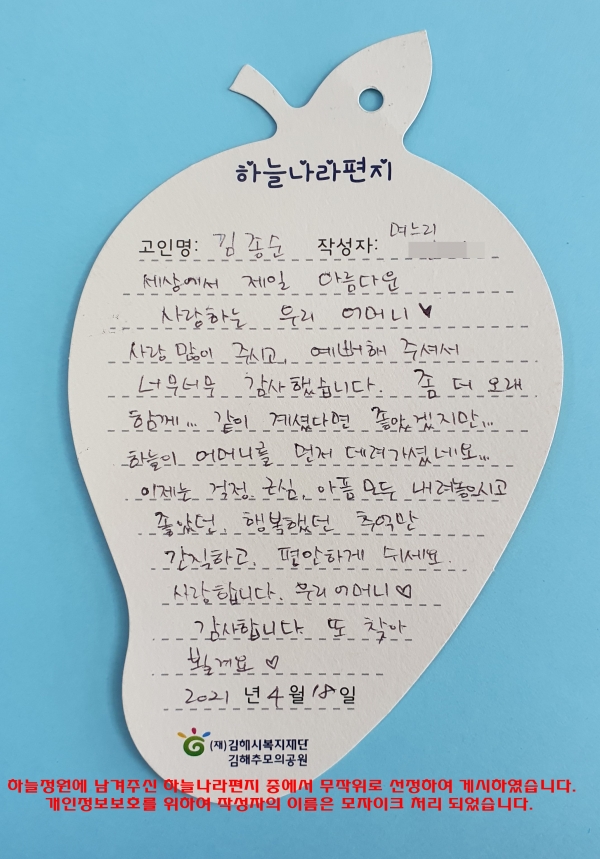 하늘나라편지
고인명: 김종순 작성자: 며느리
세상에서 제일 아름다운
사랑하는 우리 어머니♥
사랑 많이 주시고, 예뻐해 주셔서
너무너무 감사했습니다. 좀 더 오래
함께... 같이 계셨다면 좋았겠지만...
하늘이 어머니를 먼저 데려가셨네요...
이제는 걱정, 근심, 아픔 모두 내려놓으시고
좋았던, 행복했던 추억만
간직하고, 편안하게 쉬세요.
사랑합니다. 우리 어머니♡
감사합니다. 또 찾아
뵐게요♡
2021 년 4 월 18 일
(재)김해시복지재단
김해추모의공원
하늘정원에 남겨주신 하늘나라편지 중에서 무작위로 선정하여 게시하였습니다.
개인정보보호를 위하여 작성자의 이름은 모자이크 처리 되었습니다.